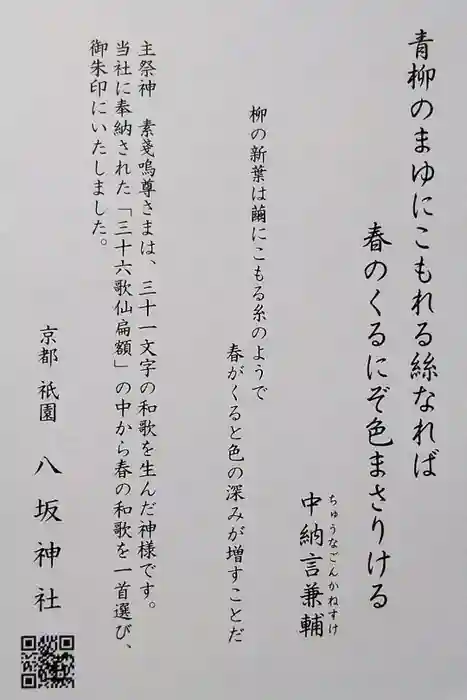 青柳のまゆにこもれる絲なれば
春のくるにぞ色まさりける
中納言兼輔
ちゅうなごんかねすけ
柳の新葉は繭にこもる糸のようで
春がくると色の深みが増すことだ
主祭神　素戔嗚尊さまは、三十一文字の和歌を生んだ神様です。
当社に奉納された「三十六歌仙扁額」の中から春の和歌を一首選び、
御朱印にいたしました。
京都 祇園 八坂神社